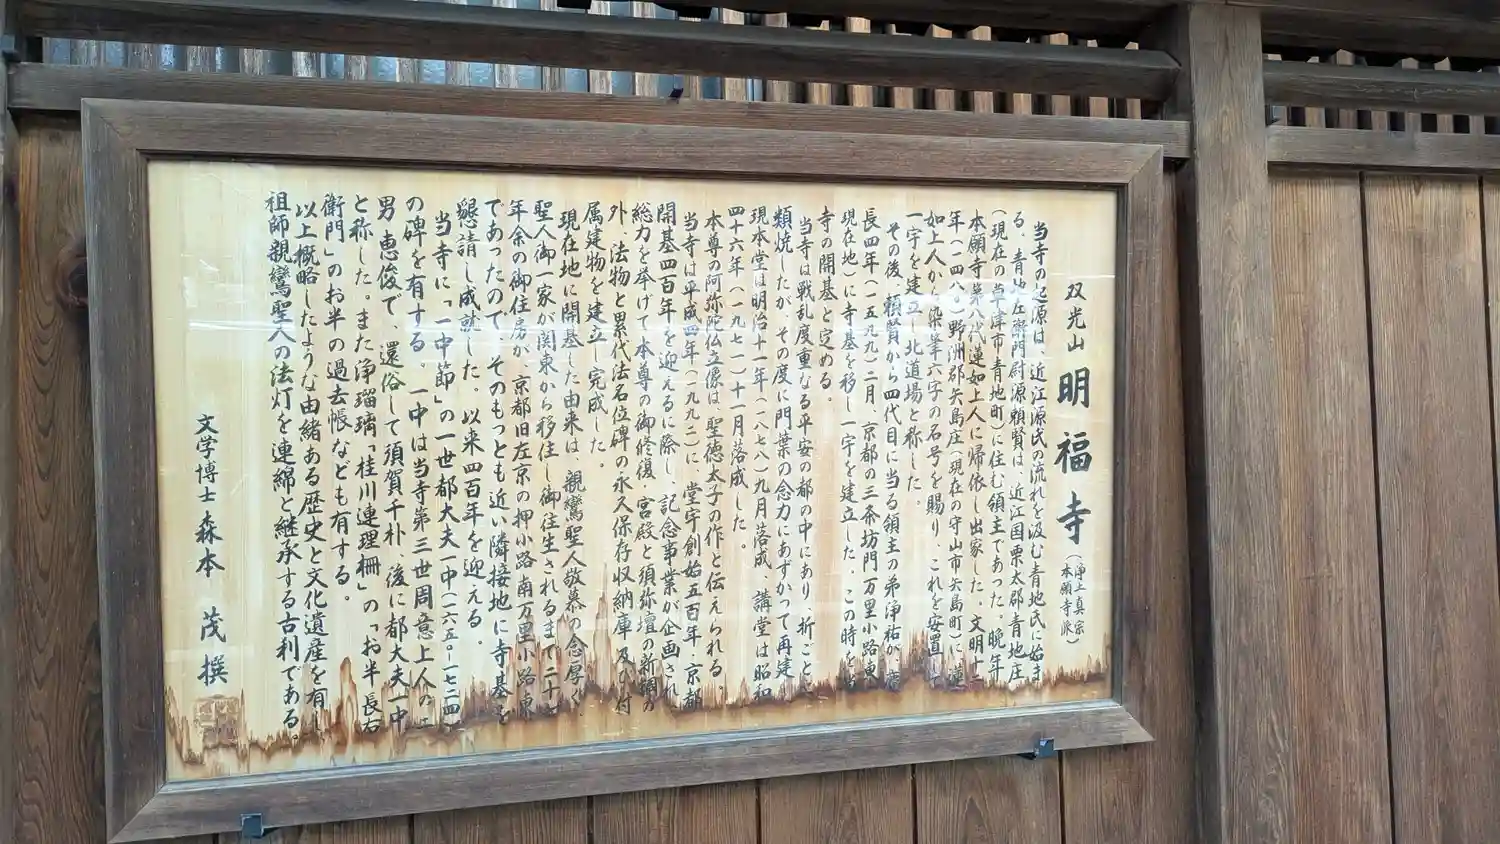 双光山 明福寺 (浄土真宗
本願寺派)
当寺の起源は、近江源氏の流れを汲む青地氏に始ま
る。青地左衛門尉源頼賢は、近江国栗太郡青地庄
(現在の草津市青地町)に住む領主であった。晩年
本願寺第八代蓮如上人に帰依し出家した。文明十二
年(一四八〇)野洲郡矢島庄(現在の守山市矢島町)に蓮
如上人から染筆六字の名号を賜り、これを安置して
一宇を建立し北道場と称した。
その後、頼賢から四代目に当る領主の弟浄祐が、慶
長四年(一五九九)二月、京都の三条坊門万里小路東
現在地)に寺基を移し一宇を建立した。この時を
寺の開基と定める。
当寺は戦乱度重なる平安の都の中にあり、折ごとに
類焼したが、その度に門葉の念力にあずかって再建し
現本堂は明治十一年(一八七八)九月落成、講堂は昭和
四十六年(一九七一)十一月落成した。
本尊の阿弥陀仏立像は、聖徳太子の作と伝えられる。
当寺は平成四年(一九九二)に、堂宇創始五百年・京都
開基四百年を迎えるに際し、記念事業が企画され
総力を挙げて本尊の御修復、宮殿と須弥壇の新調の
外、法物と累代法名位碑の永久保存収納庫及び付
属建物を建立し完成した。
現在地に開基した由来は、親鸞聖人敬慕の念厚く、
聖人御一家が関東から移住し御往生されるまで二十
年余の御住房が、京都旧左京の押小路南万里小路東
であったので、そのもっとも近い隣接地に寺基を
懇請し成就した。以来四百年を迎える。
当寺に「一中節」の一世都大夫一中(一六五〇—一七二四)
の碑を有する。一中は当寺第三世周意上人の二
男、恵俊で、還俗して須賀千朴、後に都大夫一中
と称した。また浄瑠璃「桂川連理柵」の「お半 長右
衛門」のお半の過去帳なども有する。
以上概略したような由緒ある歴史と文化遺産を有し
祖師親鸞聖人の法灯を連綿と継承する古刹である。
文学博士 森本 茂 撰